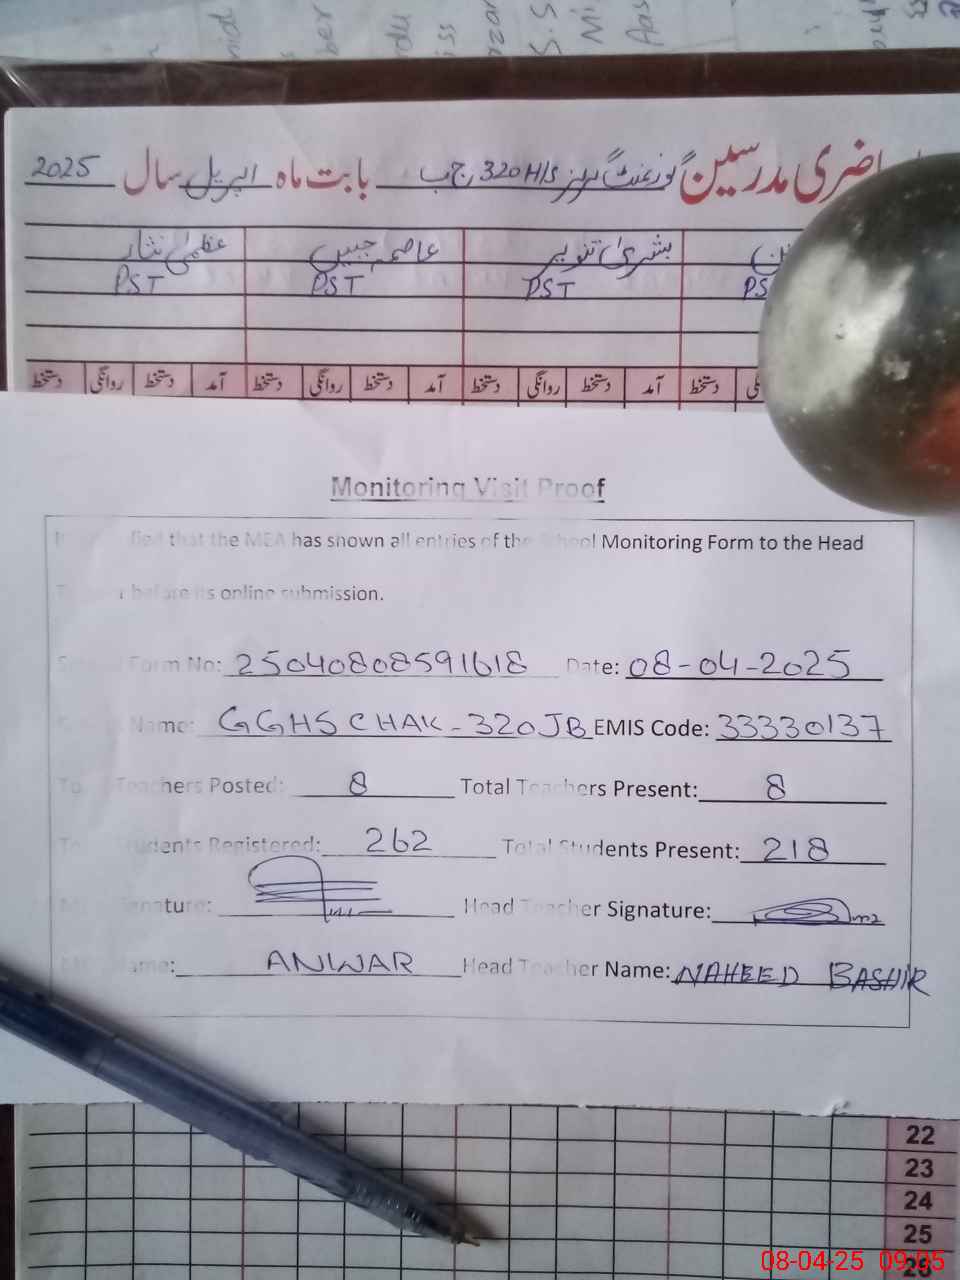 حاضری مدرسین گورنمنٹ گرلز 320 H/s ج ب بابت ماہ اپریل سال 2025
بشریٰ تنویر عاصمہ جبیں عظمیٰ نثار
PST PST PST PS
دستخط آمد دستخط روانگی دستخط آمد دستخط روانگی دستخط آمد دستخط روانگی دستخط
Monitoring Visit Proof
fied that the MEA has shown all entries of the School Monitoring Form to the Head
before its online submission.
Form No: 25040808591618 Date: 08-04-2025
Name: GGHS CHAK-320JB EMIS Code: 33330137
Teachers Posted: 8 Total Teachers Present: 8
Students Registered: 262 Total Students Present: 218
Signature: Head Teacher Signature:
Name: ANWAR Head Teacher Name: NAHEED BASHIR
22
23
24
25
26
08-04-25 09:05